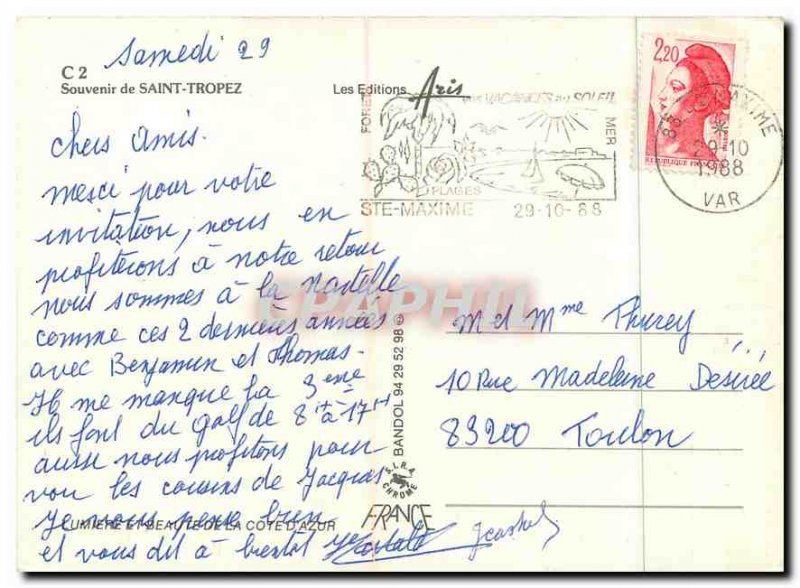 Samedi 29
C 2
Souvenir de SAINT-TROPEZ
Les Editions Aris
Chers Amis.
merci pour votre
invitation, nous en
profiterons à notre retour
nous sommes à la nartelle
comme ces 2 dernières années
avec Benjamin et Thomas.
Il me manque la 3eme
ils font du Golf de 8H à 17H
aussi nous profitons pour
voir les cousins de Jacques
Je vous pense bien
et vous dit à bientot
LUMIERE ET BEAUTE DE LA COTE D'AZUR
VACANCES au SOLEIL
FORET
MER
PLAGES
STE-MAXIME 29-10-88
2,20
REPUBLIQUE
MAXIME
29-10
1988
VAR
CPAPHIL
BANDOL 94 29 52 98
S.I.R.A. CHROME
FRANCE
M et Mme Thurey
10 Rue Madeleine Désirée
83200 Toulon